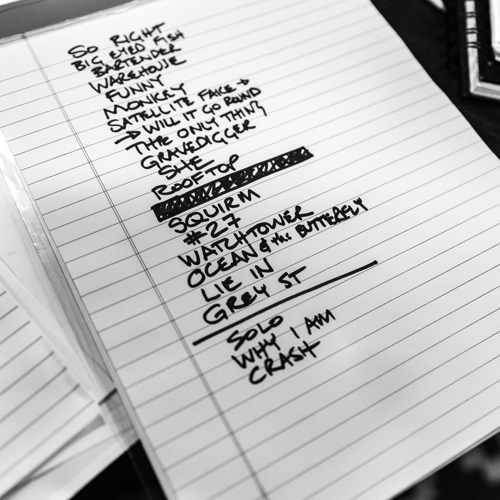 SO RIGHT
BIG EYED FISH
BARTENDER
WAREHOUSE
FUNNY
MONKEY
SATELLITE FAKE →
→ WILL IT GO ROUND
THE ONLY THING
GRAVEDIGGER
SHE
ROOFTOP
SQUIRM
#27
WATCHTOWER
OCEAN & the BUTTERFLY
LIE IN
GREY ST
SOLO
WHY I AM
CRASH